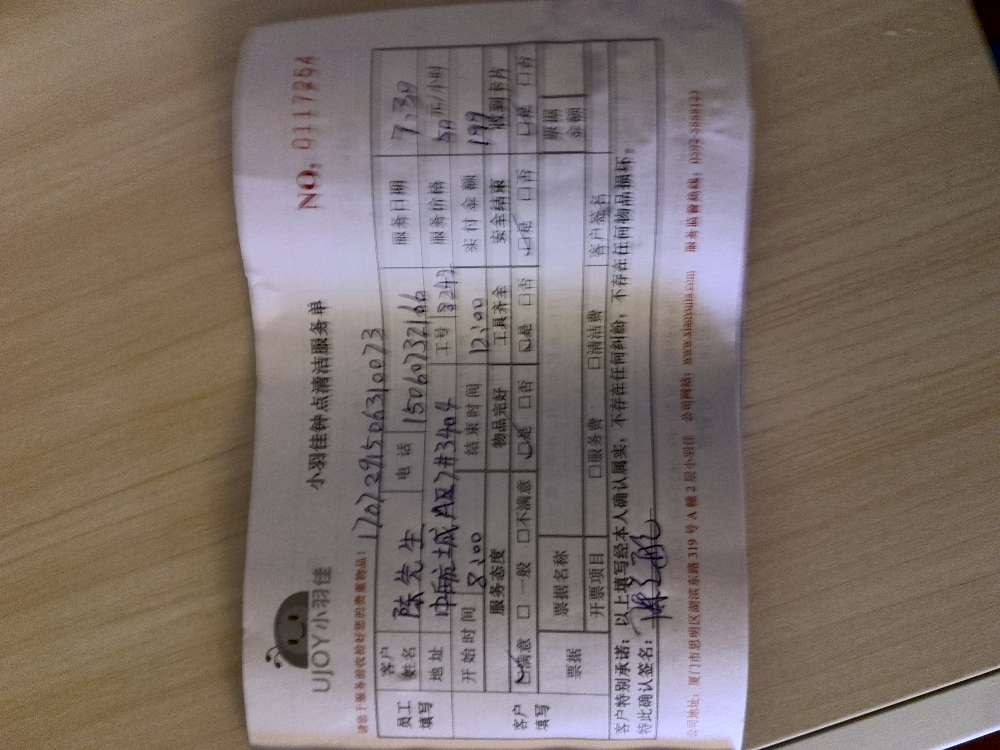 UJOY小羽佳
小羽佳钟点清洁服务单
NO: 0117254
请您于服务前收捡好您的贵重物品:
1707291506310073
员工填写
客户姓名 陈先生 电话 15060732166 服务日期 7.30
地址 中航城A区7#3404 工号 8247 服务价格 50元/小时
开始时间 8:00 结束时间 12:00 实付金额 199
客户填写
服务态度 物品完好 工具齐全 安全结束 收到卡片
☑满意 □一般 □不满意 ☑是 □否 ☑是 □否 ☑是 □否 □是 □否
票据 票据名称 票据金额
开票项目 □服务费 □清洁费 客户签名
客户特别承诺:以上填写经本人确认属实,不存在任何纠纷,不存在任何物品损坏。
特此确认签名:
公司地址:厦门市思明区湖滨东路319号A幢2层小羽佳 公司网站: 服务监督热线: